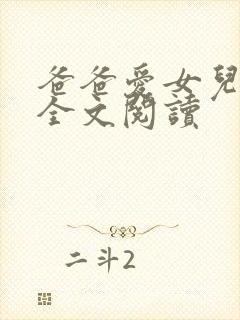 爸爸愛女兒
全文閱讀
二斗2